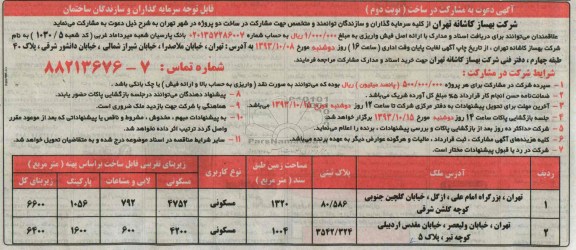 آگهی دعوت به مشارکت در ساخت ( نوبت دوم )
قابل توجه سرمایه گذاران و سازندگان ساختمان
شرکت بهساز کاشانه تهران از کلیه سرمایه گذاران و سازندگان توانمند و متخصص جهت مشارکت در ساخت دو پروژه در شهر تهران به شرح ذیل دعوت به مشارکت می‌نماید
علاقمندان می‌توانند برای دریافت اسناد و مدارک با ارائه اصل فیش واریزی به مبلغ ۱/۰۰۰/۰۰۰ ریال به حساب شماره ۰۲۰۱۳۵۷۴۸۶۰۰۷ بانک پارسیان شعبه میرداماد غربی (کد شعبه ۱۰۳۰/۵) به نام
شرکت بهساز کاشانه تهران ، از تاریخ چاپ آگهی لغایت پایان وقت اداری (ساعت ۱۶) روز دوشنبه مورخ ۱۳۹۳/۱۰/۰۸ به آدرس : تهران ، خیابان ملاصدرا ، خیابان شیراز شمالی ، خیابان دانشور شرقی ، پلاک ۴۰
طبقه چهارم ، دفتر فنی شرکت بهساز کاشانه تهران جهت خرید اسناد و مدارک مشارکت مراجعه فرمایید.
شماره تماس : ۷ - ۸۸۲۱۳۶۷۶
شرایط شرکت در مشارکت :
۱- سپرده شرکت در مشارکت برای هر پروژه ۵۰۰/۰۰۰/۰۰۰ (پانصد میلیون) ریال بوده که می‌توانند به صورت نقد (واریزی به حساب بالا و ارائه فیش) یا چک بانکی باشد.
۲- ضمانتنامه حسن انجام کار قرارداد ۵% مبلغ کل آورده شریک می‌باشد.
۳- آخرین مهلت برای تحویل پیشنهادات به دفتر مرکزی شرکت تا ساعت ۱۴ روز دوشنبه مورخ ۱۳۹۳/۱۰/۱۵ می‌باشد.
۴- جلسه بازگشایی پاکات ساعت ۱۴ روز دوشنبه مورخ ۱۳۹۳/۱۰/۱۵ برگزار خواهد شد.
۵- شرکت حداکثر ده روز بعد از بازگشایی پاکات و بررسی پیشنهادات ، برنده را اعلام می‌نماید.
۶- کلیه هزینه‌های آگهی مشارکت ، ثبت قرارداد ، مالیات و هرگونه عوارض دیگر به عهده برنده می‌باشد.
۷- شرکت در رد یا قبول پیشنهادات مختار است.
۸- پیشنهاد دهندگان می‌توانند در جلسه بازگشایی پاکات حضور یابند.
۹- هماهنگی با شرکت جهت بازدید ملک ضروری است.
۱۰- به پیشنهادات مبهم ، مخدوش ، مشروط و ناقص یا پیشنهاداتی که بعد از موعود مقرر
واصل گردد ترتیب اثر داده نخواهد شد.
۱۱- سایر شرایط مناقصه در اسناد موضوعه درج شده و به تحویل متقاضیان خواهد شد.
ردیف | آدرس ملک | پلاک ثبتی | مساحت زمین طبق سند ( متر مربع ) | نوع کاربری | زیربنای تقریبی قابل ساخت براساس پهنه ( متر مربع )
ازکل | لابی و مشاعات | پارکینگ | زیربنای کل
۱ | تهران ، بزرگراه امام علی ، ازگل ، خیابان گلچین جنوبی کوچه گلشن شرقی | ۸۰/۵۸۶ | ۱۳۲۰ | مسکونی | ۴۷۵۲ | ۷۹۲ | ۱۰۵۶ | ۶۶۰۰
۲ | تهران ، خیابان ولیعصر ، خیابان مقدس اردبیلی کوچه تیر ، پلاک ۵ | ۳۵۴۲/۳۲۴ | ۱۰۰۴ | مسکونی | ۴۲۰۰ | ۶۰۰ | ۱۶۰۰ | ۶۴۰۰